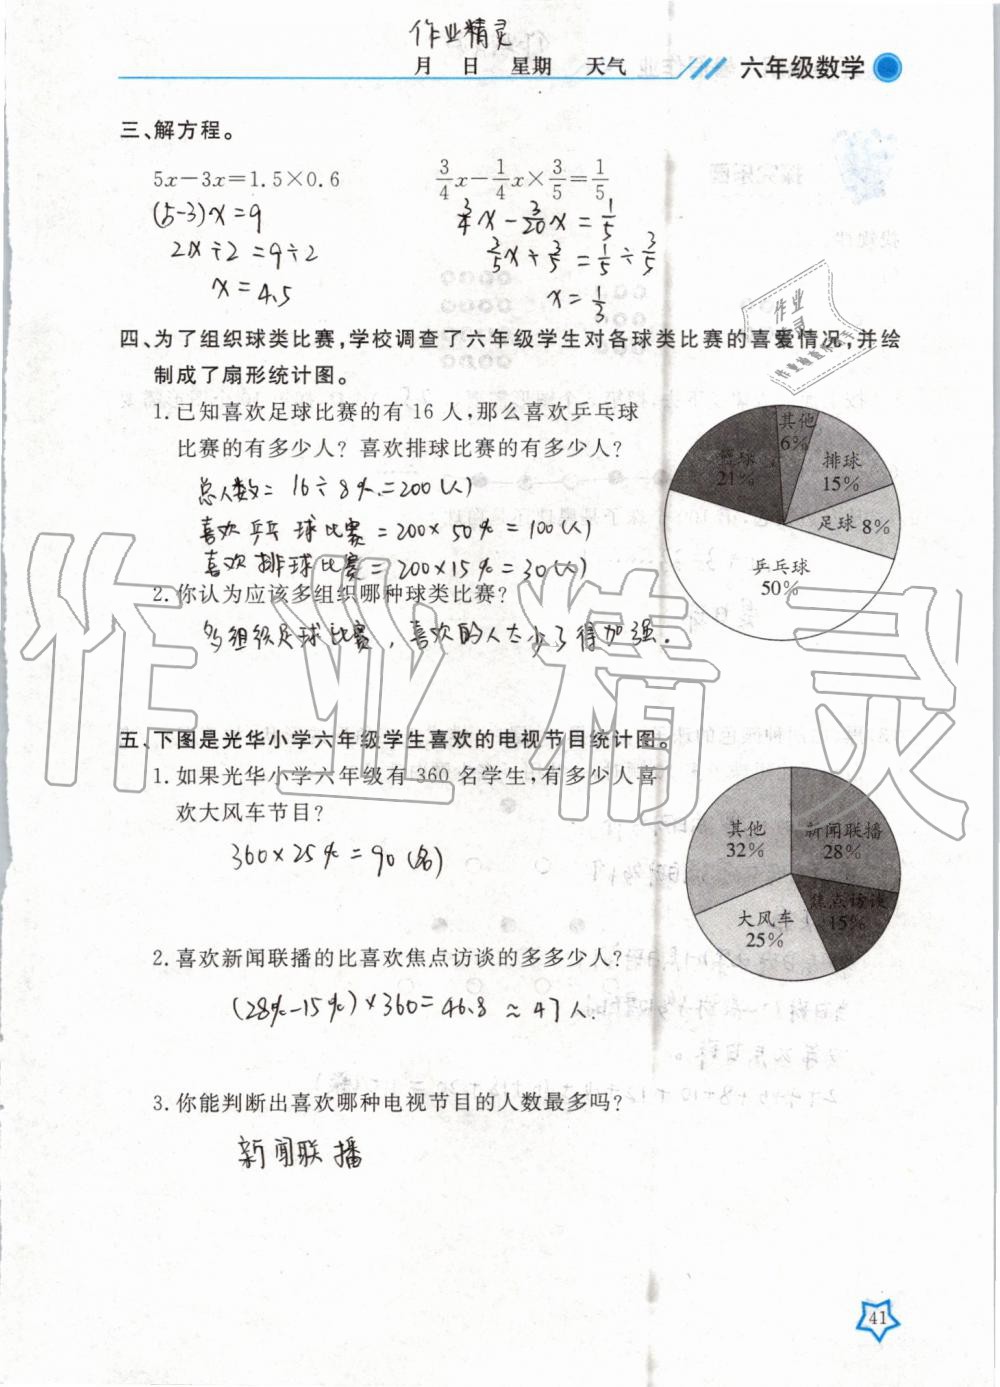 作业精灵
月 日 星期 天气 六年级数学
三、解方程。
5x－3x＝1.5×0.6
(5-3)x＝9
2x÷2＝9÷2
x＝4.5
3/4x－1/4x×3/5＝1/5
3/4x－3/20x＝1/5
3/5x÷3/5＝1/5÷3/5
x＝1/3
四、为了组织球类比赛,学校调查了六年级学生对各球类比赛的喜爱情况,并绘
制成了扇形统计图。
1.已知喜欢足球比赛的有16人,那么喜欢乒乓球
比赛的有多少人？喜欢排球比赛的有多少人？
总人数＝16÷8%＝200(人)
喜欢乒乓球比赛＝200×50%＝100(人)
喜欢排球比赛＝200×15%＝30(人)
2.你认为应该多组织哪种球类比赛？
多组织足球比赛，喜欢的人太少了得加强。
其他
6%
篮球
21%
排球
15%
足球 8%
乒乓球
50%
作业精灵
五、下图是光华小学六年级学生喜欢的电视节目统计图。
1.如果光华小学六年级有360名学生,有多少人喜
欢大风车节目？
360×25%＝90(名)
2.喜欢新闻联播的比喜欢焦点访谈的多多少人？
(28%-15%)×360＝46.8≈47人.
3.你能判断出喜欢哪种电视节目的人数最多吗？
新闻联播
其他
32%
新闻联播
28%
焦点访谈
15%
大风车
25%
41